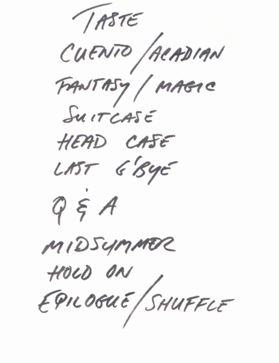 TASTE
CUENTO/ACADIAN
FANTASY/MAGIC
SUITCASE
HEAD CASE
LAST G'BYE
Q & A
MIDSUMMER
HOLD ON
EPILOGUE/SHUFFLE